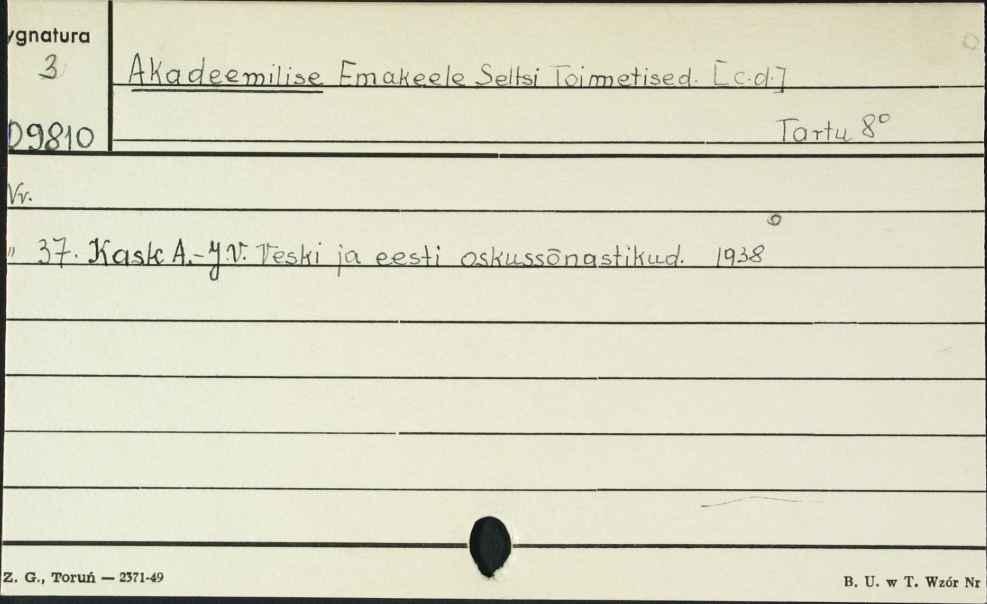 ygnatura
3
Akadeemilise Emakeele Seltsi Toimetised. [c.d.]
09810
Tartu 8°
Nr.
" 37. Kask A.-J.V. Veski ja eesti oskussõnastikud. 1938
Z. G., Toruń — 2371-49
B. U. w T. Wzór Nr